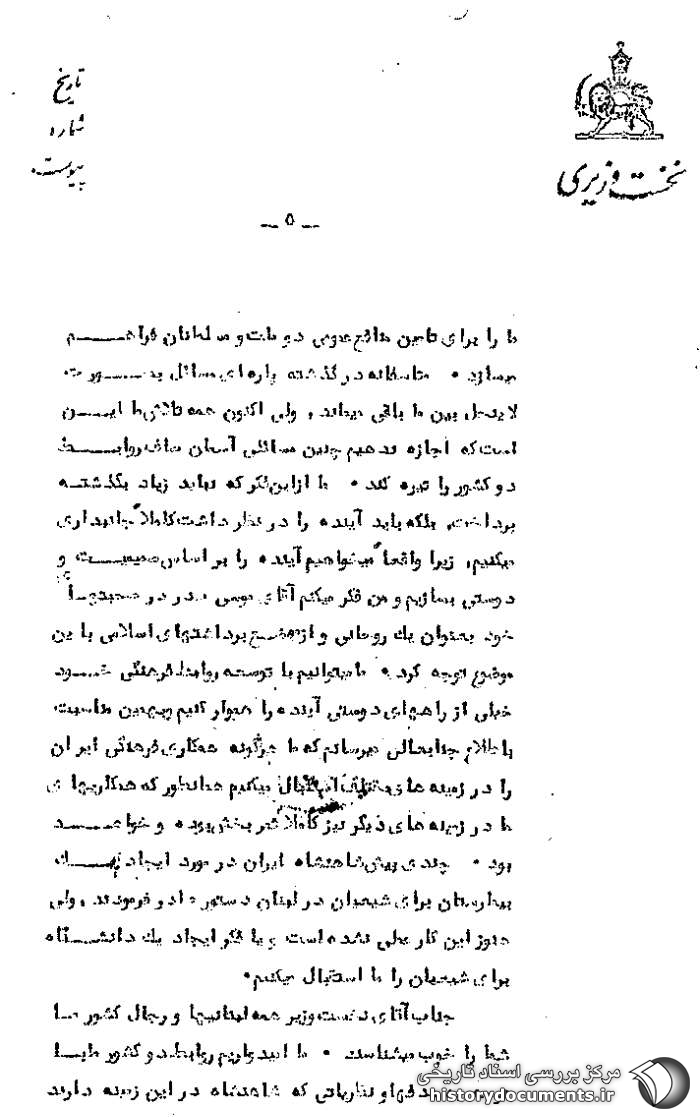 تاریخ
شماره
پیوست
نخست وزیری
_ ۵ _
ما را برای تامین منافع عمومی دو ملت و مسلمانان فراهم
میسازد ۰ متاسفانه در گذشته پاره ای مسائل بصورت
لاینحل بین ما باقی میماند، ولی اکنون همه تلاش ما این
است که اجازه ندهیم چنین مسائلی آسمان صاف روابط
دو کشور را تیره کند ۰ ما از این فکر که نباید زیاد بگذشته
پرداخت، بلکه باید آینده را در نظر داشت کاملاً جانبداری
میکنیم، زیرا واقعاً میخواهیم آینده را بر اساس صمیمیت و
دوستی بسازیم و من فکر میکنم آقای موسی صدر در
خود بعنوان یک روحانی و از برداشتهای اسلامی باین
موضوع توجه کرد ۰ ما میتوانیم با توسعه روابط فرهنگی خود
خیلی از راههای دوستی آینده را هموار کنیم و بهمین مناسبت
باطلاع جنابعالی میرسانم که ما هرگونه همکاری فرهنگی ایران
را در زمینه های مختلف استقبال میکنیم همانطور که همکاریهای
ما در زمینه های دیگر نیز کاملا ثمر بخش بوده و خواهد
بود ۰ چندی پیش شاهنشاه ایران در مورد ایجاد یک
بیمارستان برای شیعیان در لبنان دستور صادر فرمودند، ولی
هنوز این کار عملی نشده است و با فکر ایجاد یک دانشگاه
برای شیعیان را ما استقبال میکنیم۰
جناب آقای نخست وزیر همه لبنانیها و رجال کشور ما
شما را خوب میشناسند ۰ ما امیدواریم روابط دو کشور طبق
هدفها و نظریاتی که شاهنشاه در این زمینه دارند
مرکز بررسی اسناد تاریخی
historydocuments.ir